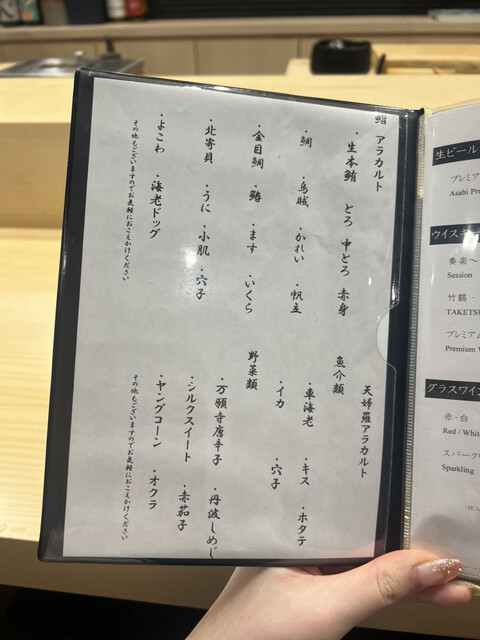 鮨 アラカルト
・生本鮪 とろ 中とろ 赤身
・鯛 ・烏賊 ・かれい ・帆立
・金目鯛 ・鰆 ・ます ・いくら
・北寄貝 ・うに ・小肌 ・穴子
・よこわ ・海老ドッグ
その他もございますのでお気軽におこえかけください
天婦羅アラカルト
魚介類
・車海老 ・キス ・ホタテ
・イカ ・穴子
野菜類
・万願寺唐辛子 ・丹波しめじ
・シルクスイート ・赤茄子
・ヤングコーン ・オクラ
その他もございますのでお気軽におこえかけください
生ビール
プレミア
Asahi Pre
ウイスキ
奏楽〜
Session
竹鶴・
TAKETSU
プレミアム
Premium V
グラスワイン
赤・白
Red / White
スパーク
Sparkling